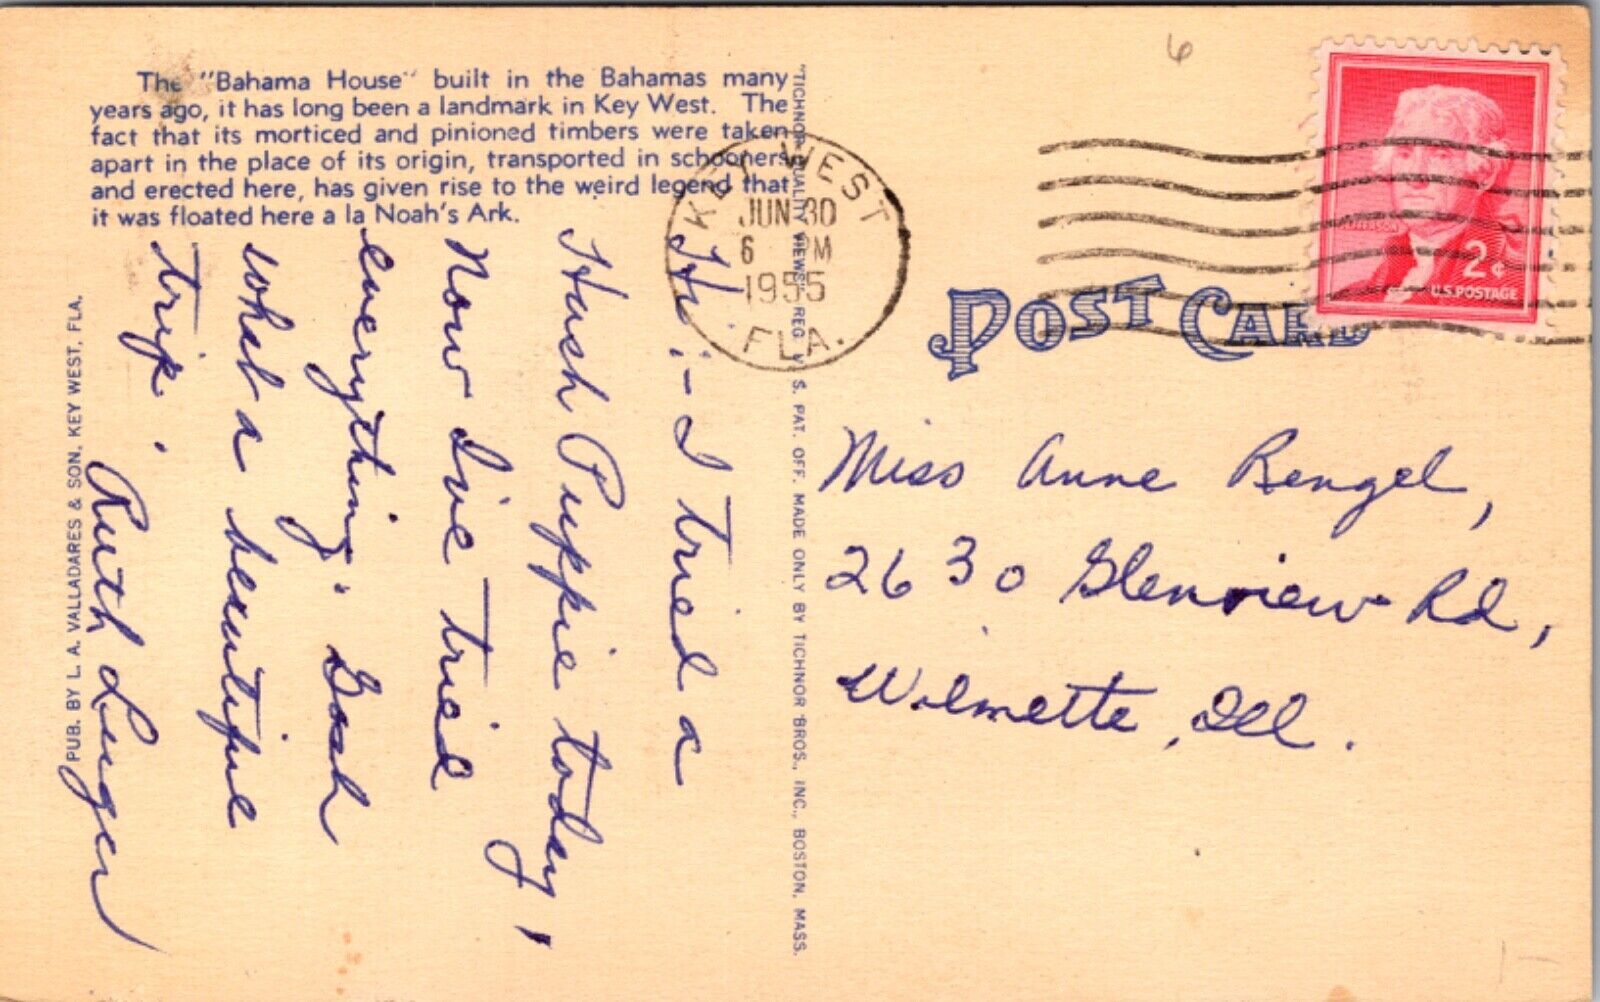 The "Bahama House" built in the Bahamas many
years ago, it has long been a landmark in Key West. The
fact that its morticed and pinioned timbers were taken
apart in the place of its origin, transported in schooners
and erected here, has given rise to the weird legend that
it was floated here a la Noah's Ark.
Hi :- I tried a
Hush Puppie today,
Now I've tried
everything" Gosh
what a beautiful
trip.
Ruth Luger
PUB. BY L. A. VALLADARES & SON, KEY WEST, FLA.
"TICHNOR QUALITY VIEWS," REG. U. S. PAT. OFF. MADE ONLY BY TICHNOR BROS., INC., BOSTON, MASS.
KEY WEST
JUN 30
6 PM
1955
FLA.
6
JEFFERSON
2¢
U.S. POSTAGE
POST CARD
Miss Anne Rengel,
2630 Glenview Rd,
Wilmette, Ill.
1-